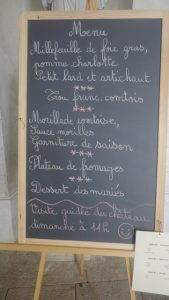 Menu
Millefeuille de foie gras,
pomme charlotte
Petit lard et artichaut
***
Trou franc-comtois
***
Morillade comtoise,
Sauce morilles
Garniture de saison
***
Plateau de fromages
***
Dessert des mariés
Visite guidée du château
dimanche à 11h